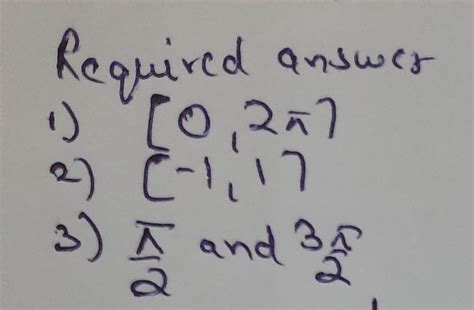 Required answer
1) [0, 2π]
2) [-1, 1]
3) π/2 and 3π/2